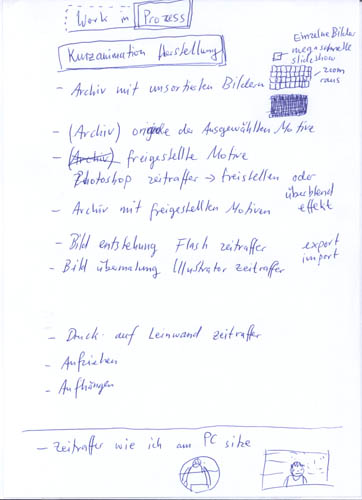 Work in Prozess
Kurzanimation Herstellung
Einzelne Bilder
mega schnelle
slideshow
- Archiv mit unsortierten Bildern
→ zoom
raus
- (Archiv) der Ausgewählten Motive
- (Archiv) freigestellte Motive
Photoshop zeitraffer → freistellen oder
überblend
effekt
- Archiv mit freigestellten Motiven
- Bild entstehung Flash zeitraffer
export
import
- Bild übermalung Illustrator zeitraffer
- Druck auf Leinwand zeitraffer
- Aufziehen
- Aufhängen
- Zeitraffer wie ich am PC sitze